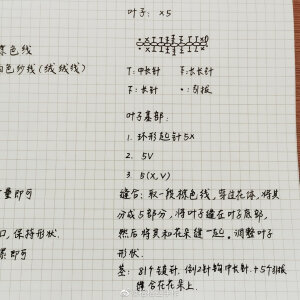 叶子: x5
棕色线
白色纱线(绒绒线)
T: 中长针
T: 长长针
T: 长针
•: 引拔
叶子基部:
1. 环形起针5X
2. 5V
3. 5(X,V)
量即可
口,保持形状.
累即可
缝合: 取一段棕色线, 穿过花体, 将其
分成5部分, 将叶子缝在叶子底部,
然后将其和花朵缝一起。调整叶子
形状.
基: 81个锁针. 倒2针钩中长针.
缝合在花朵上.